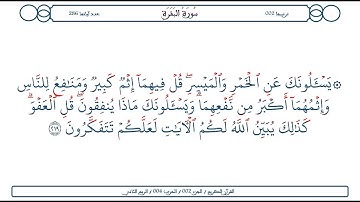 ترتيبها 002 سُورَةُ البَقَرَةِ عدد آياتها 286
۞ يَسۡـَٔلُونَكَ عَنِ ٱلۡخَمۡرِ وَٱلۡمَيۡسِرِۖ قُلۡ فِيهِمَآ إِثۡمٞ كَبِيرٞ وَمَنَٰفِعُ لِلنَّاسِ
وَإِثۡمُهُمَآ أَكۡبَرُ مِن نَّفۡعِهِمَاۗ وَيَسۡـَٔلُونَكَ مَاذَا يُنفِقُونَۖ قُلِ ٱلۡعَفۡوَۗ
كَذَٰلِكَ يُبَيِّنُ ٱللَّهُ لَكُمُ ٱلۡأٓيَٰتِ لَعَلَّكُمۡ تَتَفَكَّرُونَ ٢١٩
القرآن الكريم / الجزء 002 / الحزب 004 /